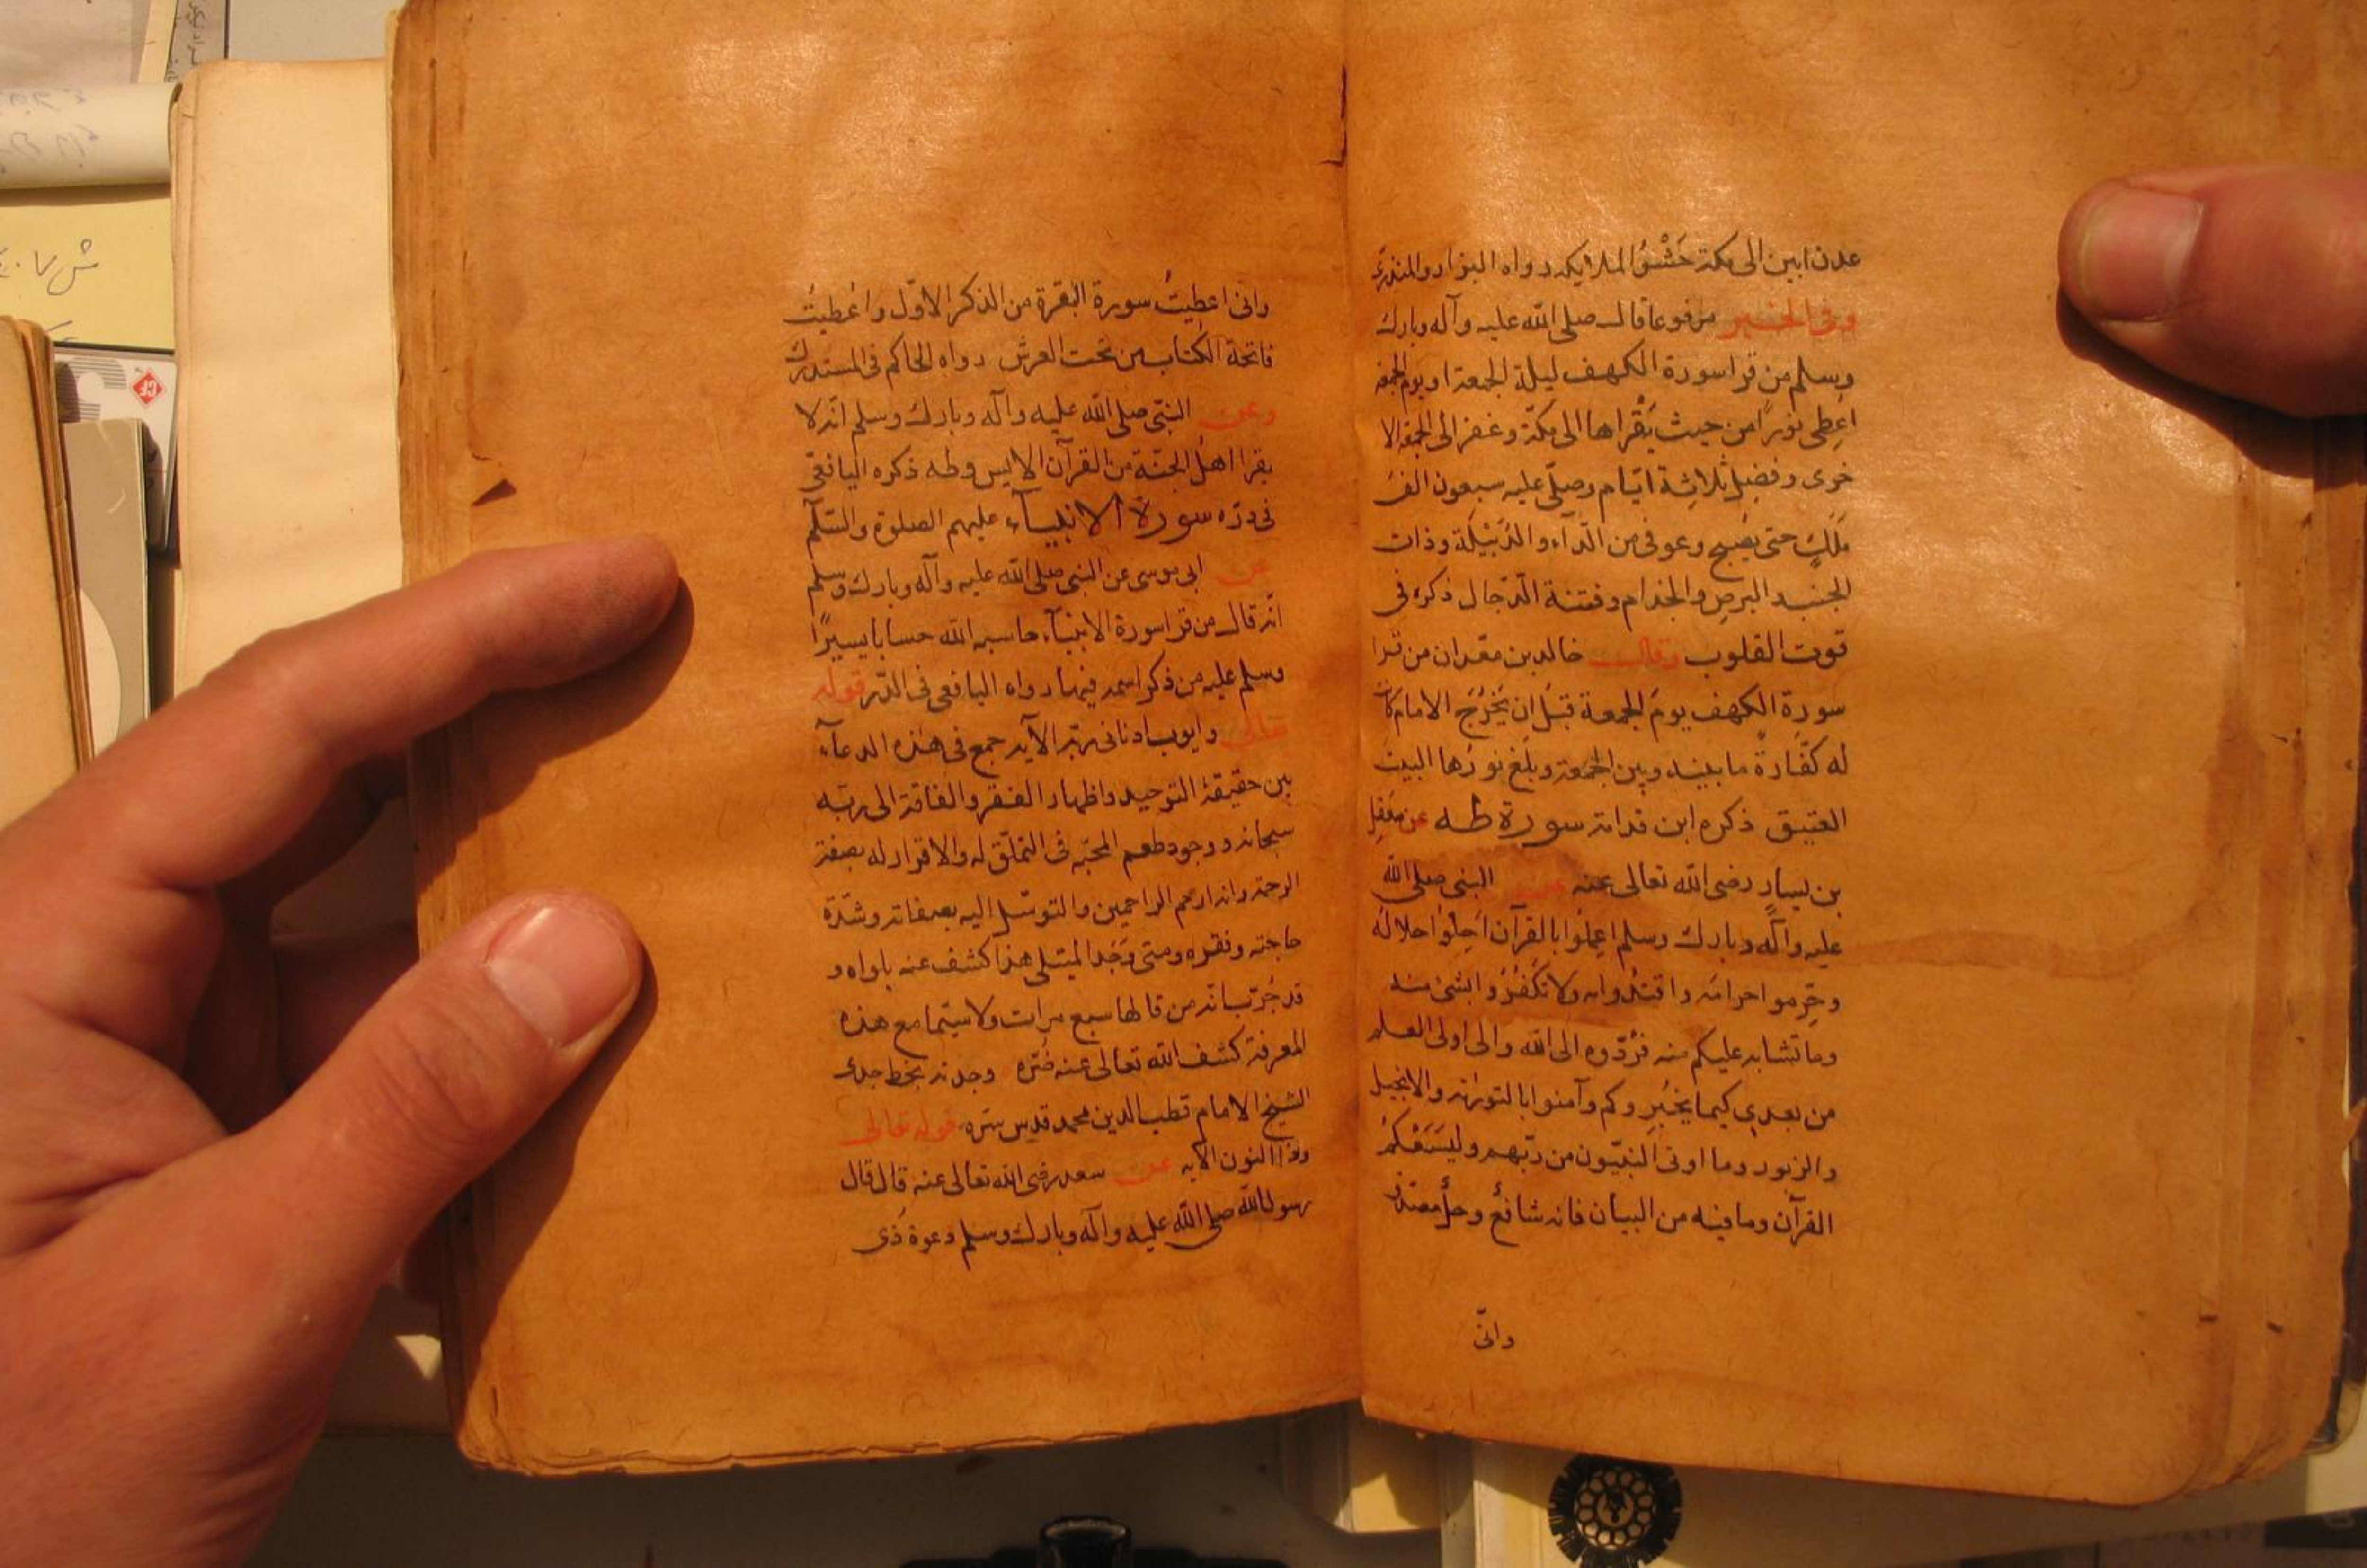 عدن ابين الى مكة حَشْوُ الملايكه رواه البزار والمنذرى
وفى الخبر مرفوعا قال صلى الله عليه وآله وبارك
وسلم من قرا سورة الكهف ليلة الجمعة او يوم الجمعة
اعطى نورًا من حيث يَقْراها الى مكّة وغفر الى الجمعة الا
خرى وفضل ثلاثة ايّام وصلّى عليه سبعون الف
مَلَكٍ حتى يصبح وعوفى من الدّاء والدُبَيْلَة وذات
الجنب والبرص والجذام وفتنة الدّجال ذكره فى
قوت القلوب وقال خالد بن معدان من قرا
سورة الكهف يومَ الجمعة قبْل ان يَخْرُجَ الامام كانت
له كفّارةً ما بينه وبين الجمعة وبلغ نورُها البيت
العتيق ذكره ابن قدامة سورة طه عن معقل
بن يسار رضى الله تعالى عنه عن النبى صلى الله
عليه وآله وبارك وسلم اعملُوا بالقرآن اَحِلّوُا حلالَه
وحرّموا حرامَه واقتدُوا به ولا تكفُرُوا بشئ منه
وما تشابه عليكم منه فرُدّوه الى الله والى اولى العلم
من بعدى كيما يخبِروكم وآمنوا بالتورٰة والانجيل
والزبور وما اوتى النبيّون من ربّهم وليَسَعْكُمُ
القرآن وما فيه من البيان فانه شافعٌ وحلٌ مصدق
وانّى
وانّى اعطيتُ سورة البقرة من الذكر الاوّل واُعطيتُ
فاتحة الكتاب من تحت العرش رواه الحاكم فى المستدرك
وعن النبّى صلى الله عليه وآله وبارك وسلم انّه لا
يقرا اهلُ الجنّة من القرآن الا يس وطه ذكره اليافعّى
فى درّه سورة الانبيآء عليهم الصلوة والسّلٰم
عن ابى موسى عن النبى صلى الله عليه وآله وبارك وسلم
انّه قال من قرا سورة الانبيآء حاسبه الله حسابا يسيرًا
وسلم عليه من ذكر اسمه فيها رواه اليافعى فى الدّر قوله
تعالى وايوب اذ نادى ربّه الآيه جمع فى هذه الدعآء
بين حقيقة التوحيد واظهار الفقر والفاقة الى ربّه
سبحانه ووجود طعم المحبّه فى التملّق له والاقرار له بصفة
الرحمة وانه ارحم الراحمين والتوسّل اليه بصفاته وشدّة
حاجته وفقره ومتى وَجَد المبتلى هذا كشف عنه بلواه و
قد جُرّب انّه من قالها سبع مرات ولا سيّما مع هذه
المعرفة كشف الله تعالى عنه ضُرّه وجدته بخط جدى
الشيخ الامام قطب الدين محمد قدس سرّه قوله تعالى
وذا النون الآيه عن سعد رضى الله تعالى عنه قال قال
رسول الله صلى الله عليه وآله وبارك وسلم دعوة ذى